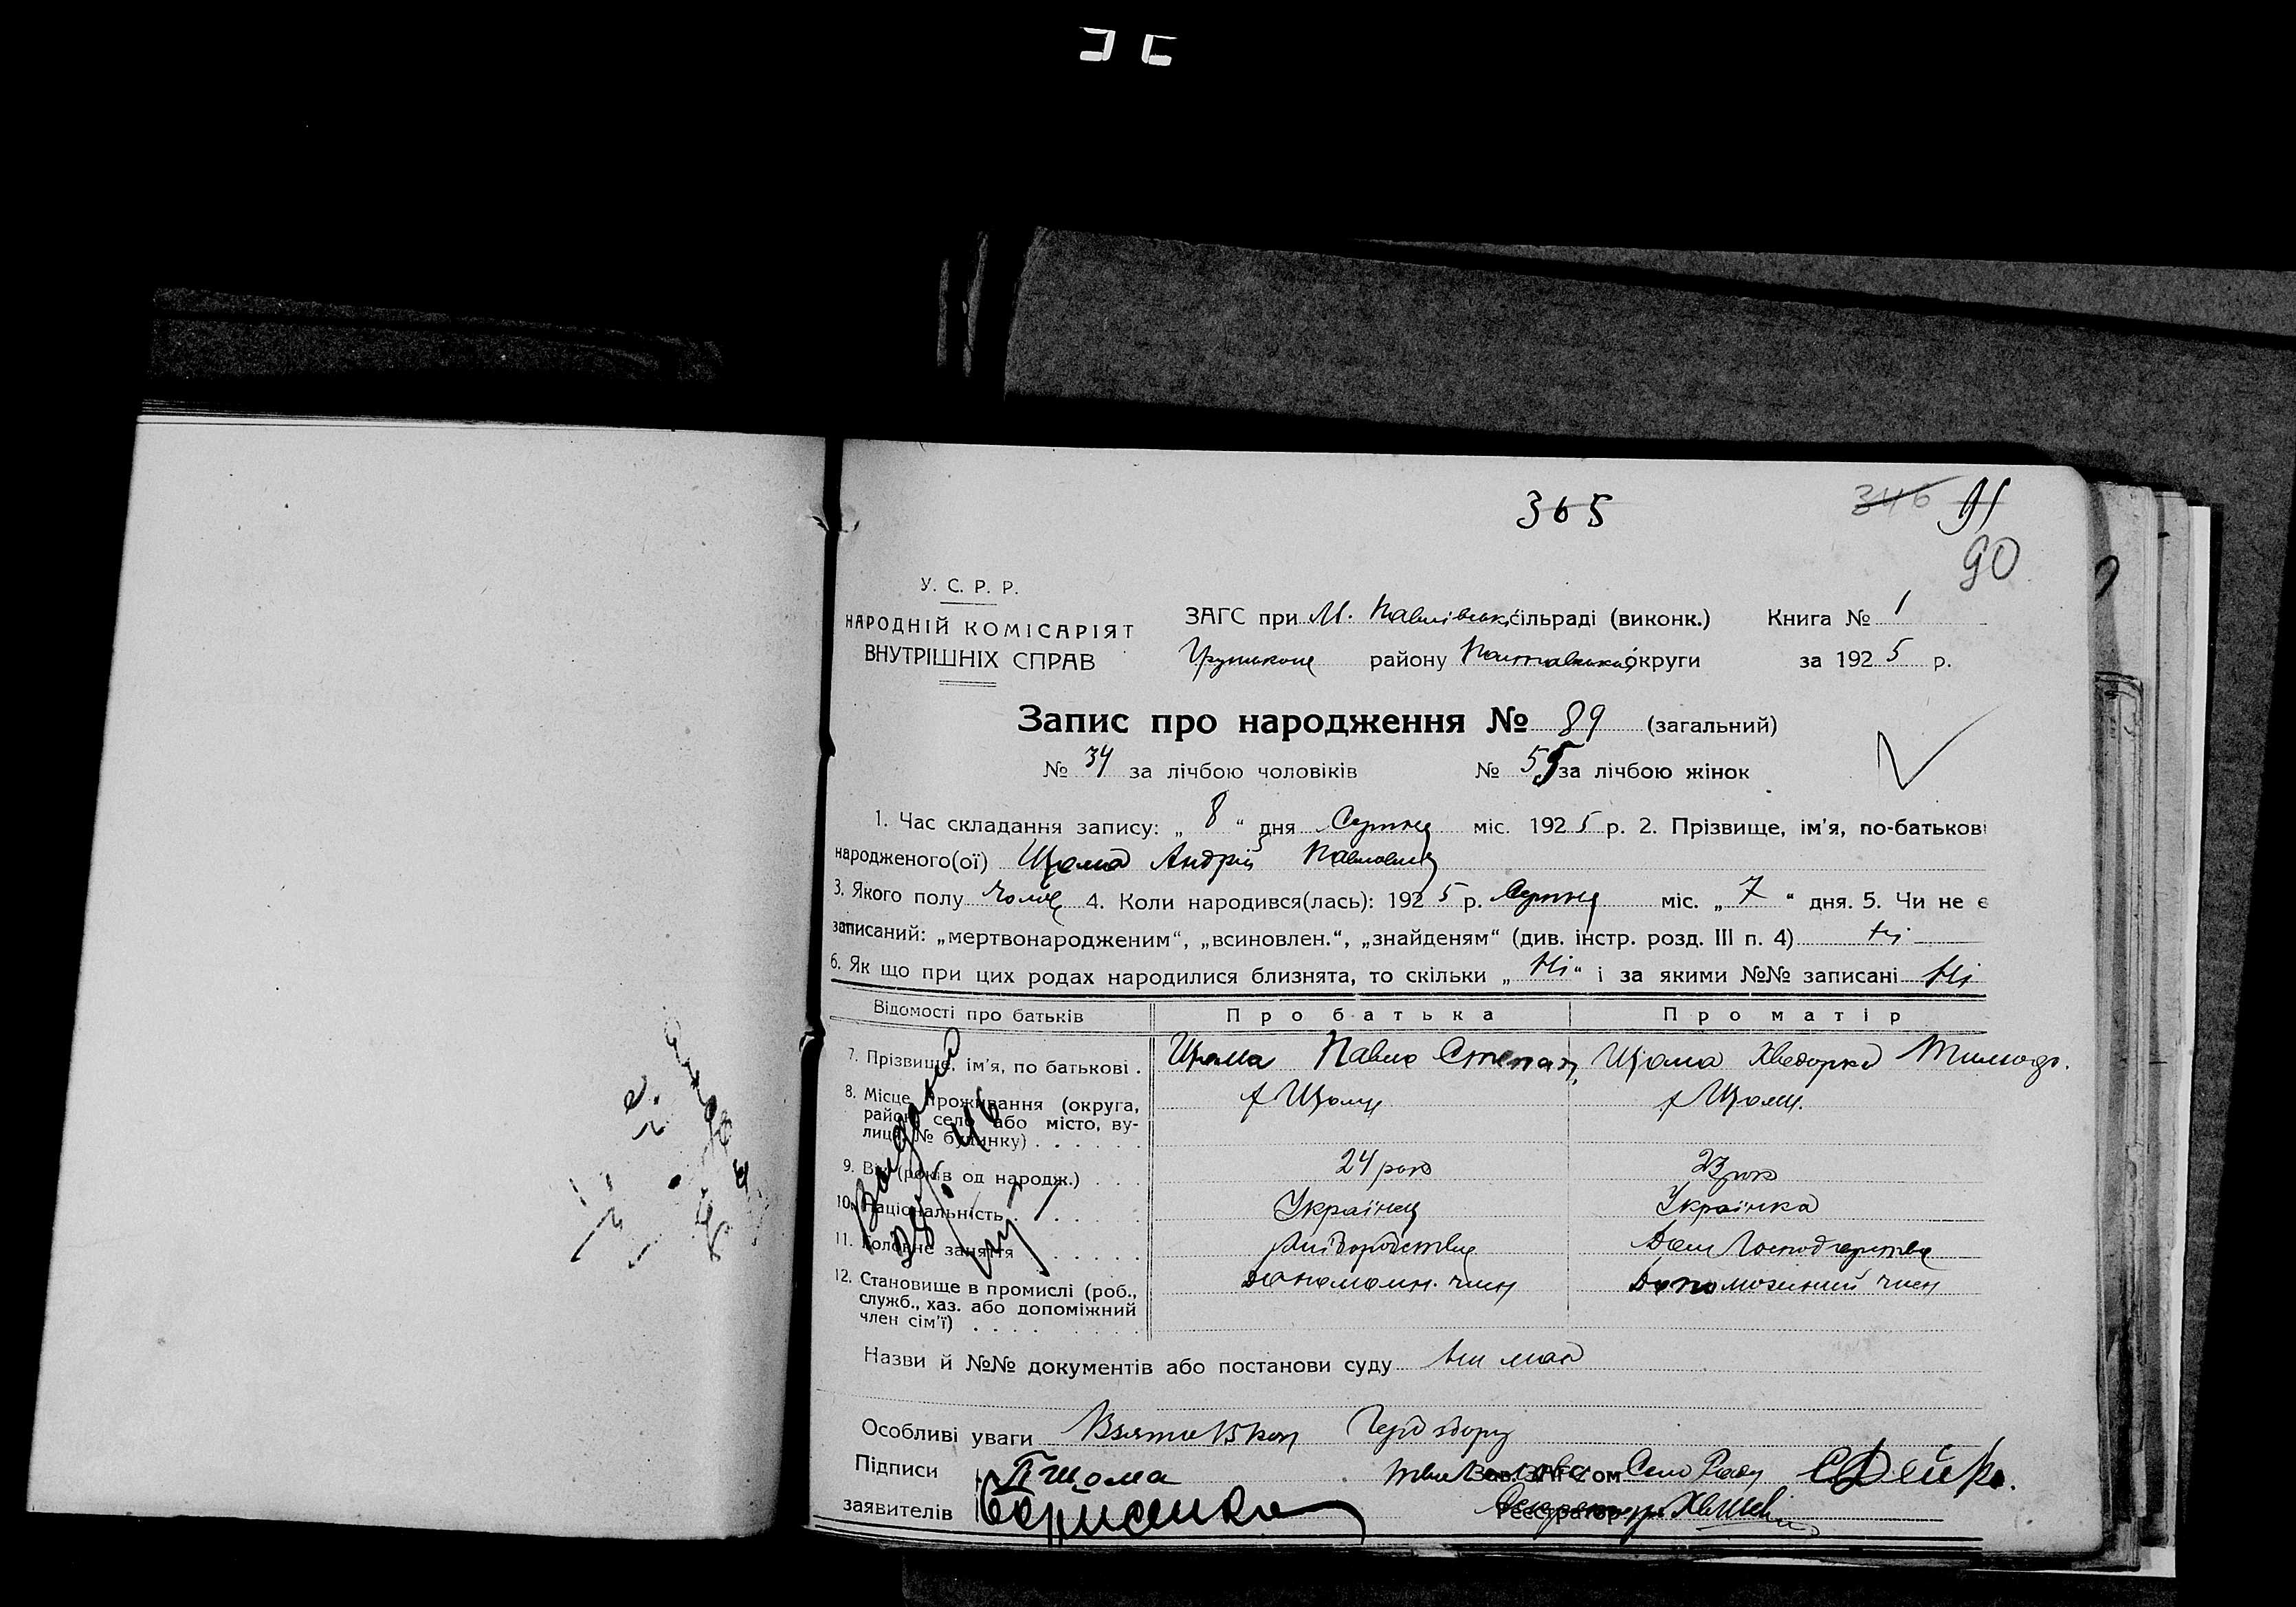 365 346 91
90
У. С. Р. Р.
НАРОДНІЙ КОМІСАРІЯТ
ВНУТРІШНІХ СПРАВ
ЗАГС при М. Павлівськ. сільраді (виконк.) Книга № 1
району Полтавської округи за 1925 р.
Запис про народження № 89 (загальний)
№ 34 за лічбою чоловіків № 55 за лічбою жінок
1. Час складання запису: „ 8 “ дня Серпня міс. 1925 р. 2. Прізвище, ім'я, по-батькові
народженого(ої) Щома Андрій Павлович
3. Якого полу чолов 4. Коли народився(лась): 1925 р. Серпня міс. „ 7 “ дня. 5. Чи не є
записаний: „мертвонародженим“, „всиновлен.“, „знайденям“ (див. інстр. розд. III п. 4) Ні
6. Як що при цих родах народилися близнята, то скільки „ Ні “ і за якими №№ записані Ні
Відомості про батьків Про батька Про матір
7. Прізвище, ім'я, по батькові . Щома Павло Степан. Щома Хведорка Тимоф.
8. Місце проживання (округа, район, село або місто, вулиця, № будинку) . . . . . . х Щоми х Щоми.
9. Вік (років од народж.) . . . 24 рок 23 рок
10. Національність . . . . . . Українец Українка
11. Головне заняття . . . . . Хліборобство Дом Господарство
12. Становище в промислі (роб., служб., хаз. або допоміжний член сім'ї) . . . . . . . . Допоможн. член Допоможний член
Назви й №№ документів або постанови суду
Особливі уваги
Підписи П Щома Зав. ЗАГС'ом Сель Ради
заявителів Борисенко Реєстратор